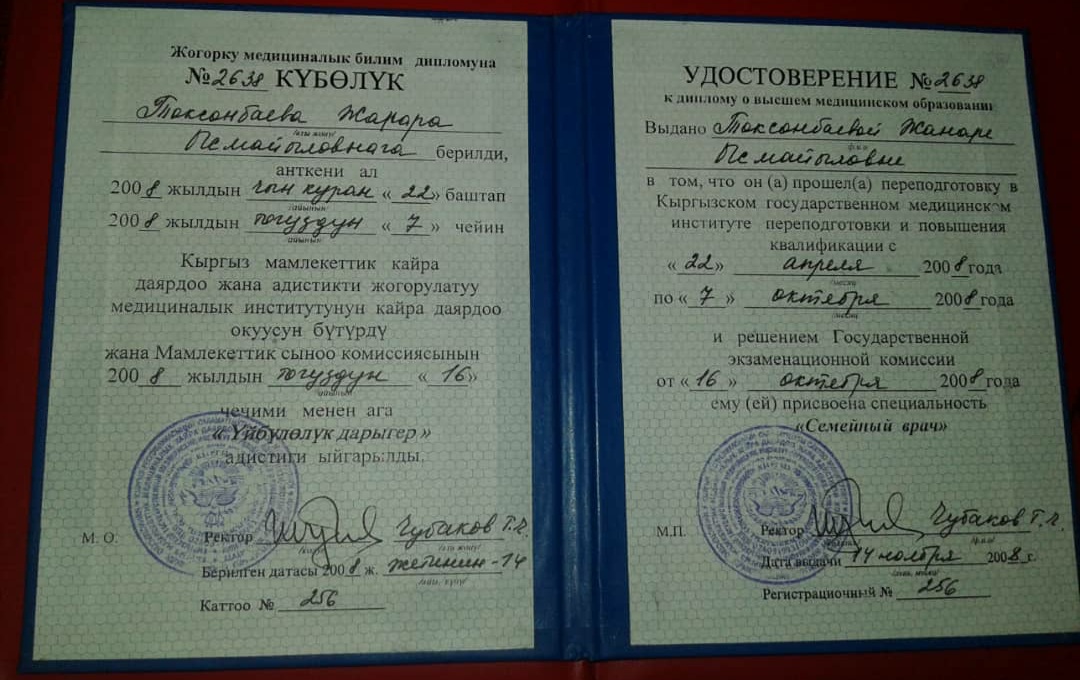 Жогорку медициналык билим дипломуна
№ 2638 КҮБӨЛҮК
Токсонбаева Жанара
/аты жөнү/
Исмайыловнага берилди,
анткени ал
2008 жылдын чын куран « 22 » баштап
/айынын/
2008 жылдын тогуздун « 7 » чейин
/айынын/
Кыргыз мамлекеттик кайра
даярдоо жана адистикти жогорулатуу
медициналык институтунун кайра даярдоо
окуусун бүтүрдү
жана Мамлекеттик сыноо комиссиясынын
2008 жылдын тогуздун « 16 »
/айынын/
чечими менен ага
«Үйбүлөлүк дарыгер»
адистиги ыйгарылды.
М. О. Ректор Чубаков Т.Ч.
/аты жөнү/
Берилген датасы 2008 ж. жетинин - 14
/айы, күнү/
Каттоо № 256
УДОСТОВЕРЕНИЕ № 2638
к диплому о высшем медицинском образовании
Выдано Токсонбаевой Жанаре
/ф.и.о/
Исмайыловне
в том, что он (а) прошел(а) переподготовку в
Кыргызском государственном медицинском
институте переподготовки и повышения
квалификации с
« 22 » апреля 2008 года
/месяц/
по « 7 » октября 2008 года
/месяц/
и решением Государственной
экзаменационной комиссии
от « 16 » октября 2008 года
ему (ей) присвоена специальность
«Семейный врач»
М.П. Ректор Чубаков Т.Ч.
/ф.и.о/
Дата выдачи 14 ноября 2008 г.
Регистрационный № 256